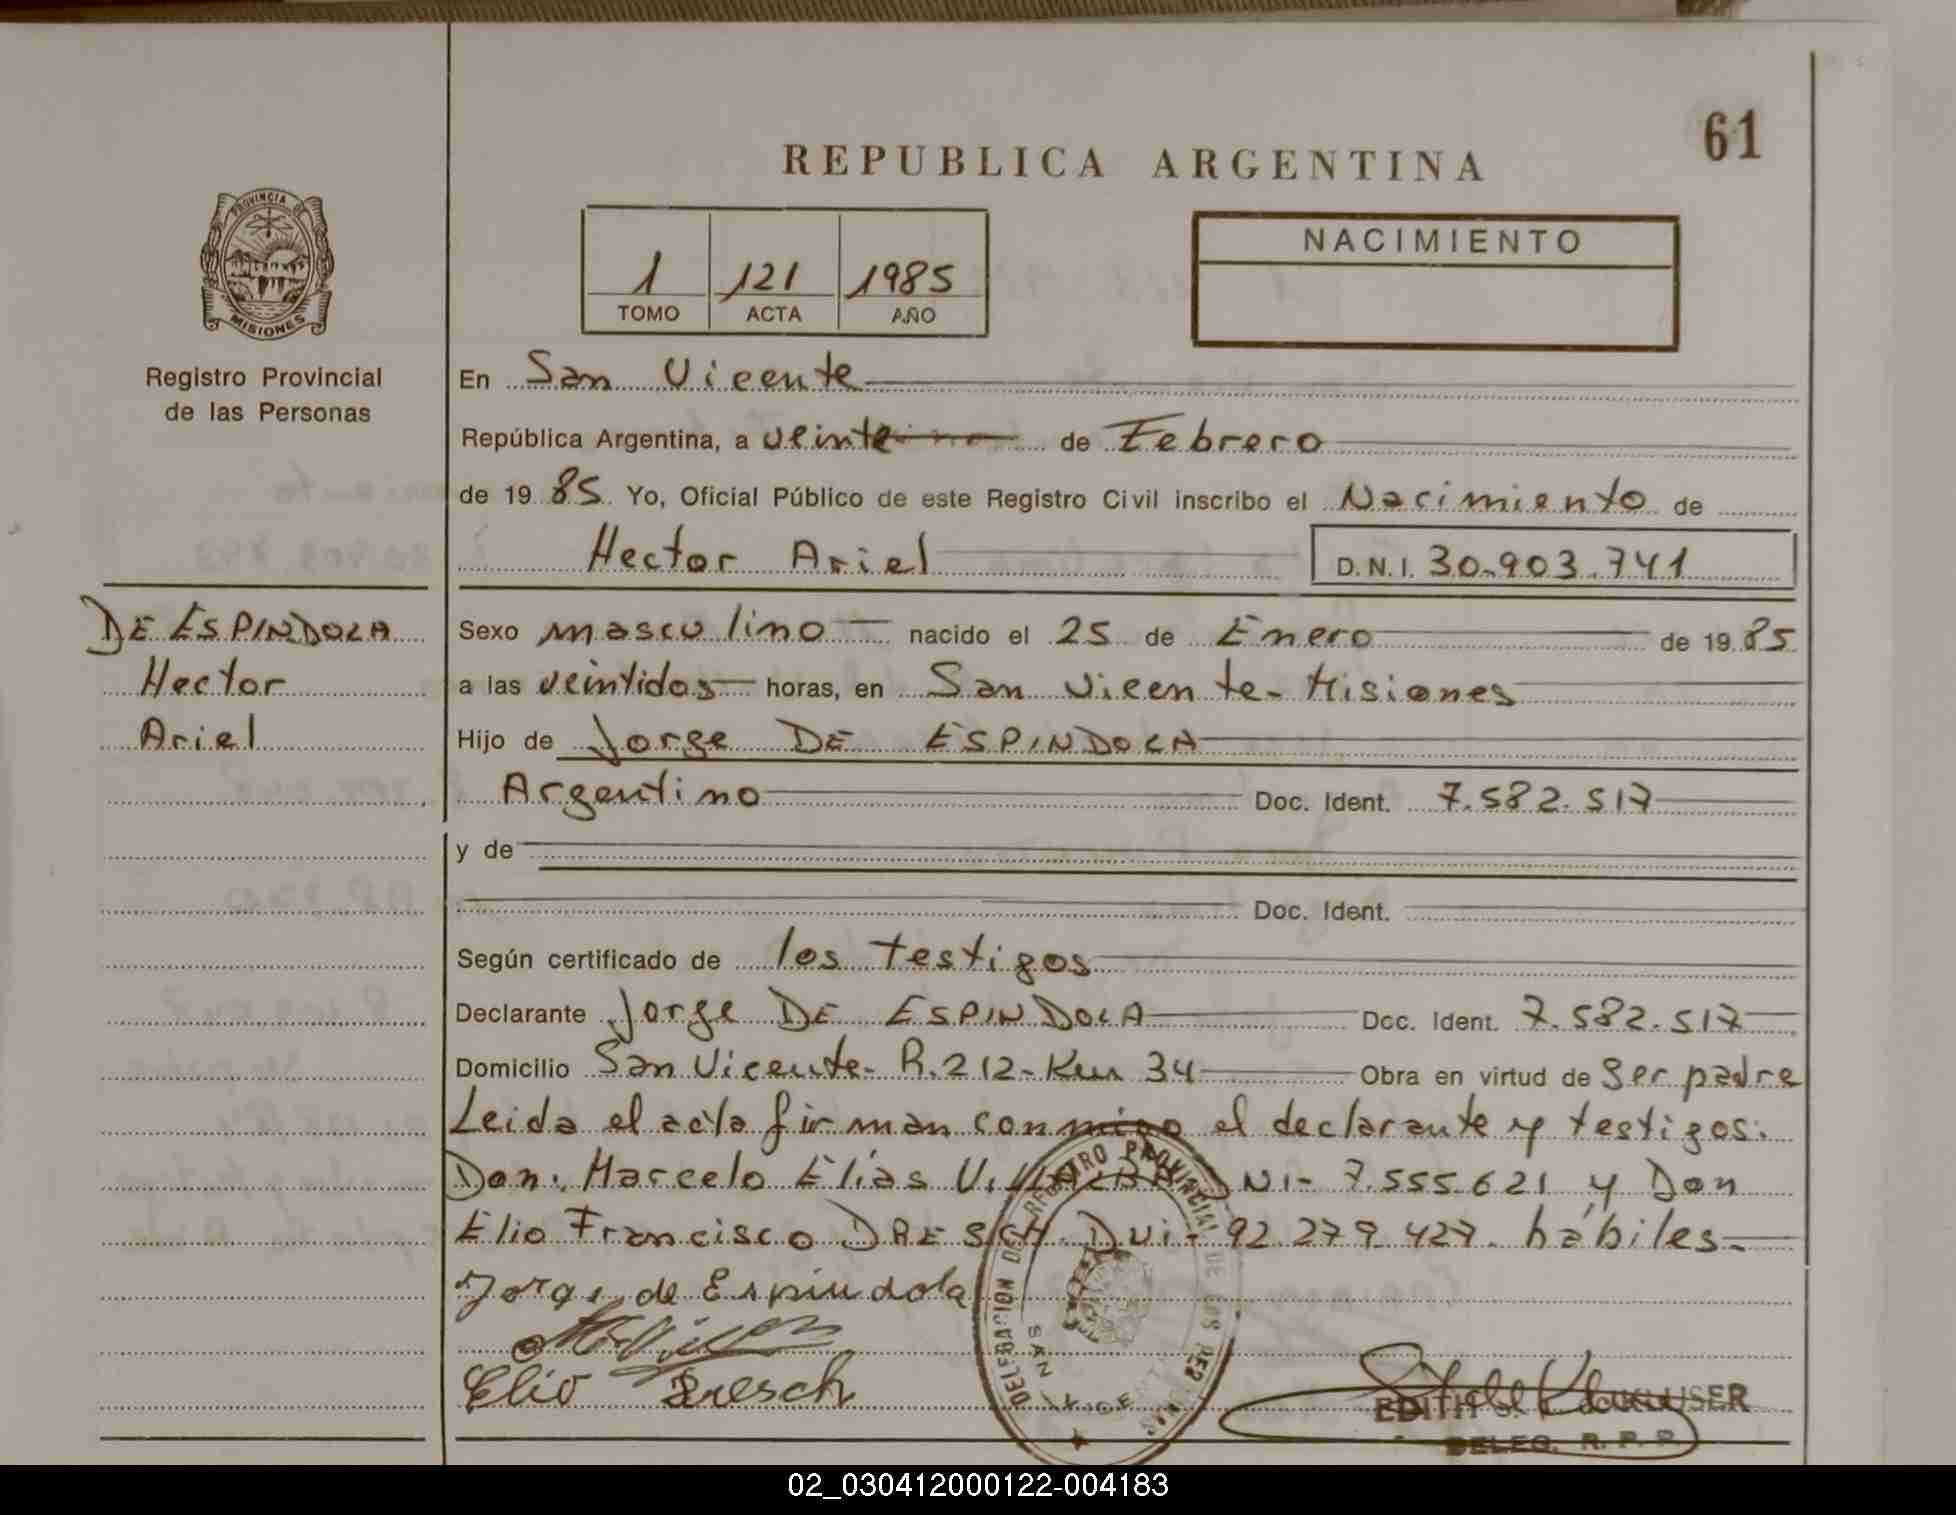 61
REPUBLICA ARGENTINA
PROVINCIA DE
MISIONES
Registro Provincial
de las Personas
1 121 1985
TOMO ACTA AÑO
NACIMIENTO
En San Vicente
República Argentina, a veinte de Febrero
de 19 85 Yo, Oficial Público de este Registro Civil inscribo el Nacimiento de
Hector Ariel D.N.I. 30.903.741
DE ESPINDOLA
Hector
Ariel
Sexo masculino nacido el 25 de Enero de 19 85
a las veintidos horas, en San Vicente - Misiones
Hijo de Jorge DE ESPINDOLA
Argentino Doc. Ident. 7.582.517
y de
Doc. Ident.
Según certificado de los testigos
Declarante Jorge DE ESPINDOLA Doc. Ident. 7.582.517
Domicilio San Vicente - R.212 - Km 34 Obra en virtud de Ser padre
Leida el acta firman conmigo el declarante y testigos.
Don. Marcelo Elias VILLALBA DNI - 7.555.621 y Don
Elio Francisco DRESCH. Dni - 92.279.427. hábiles.
Jorge de Espindola
Elio Dresch
DELEGACION DEL REGISTRO PROVINCIAL DE LAS PERSONAS
SAN VICENTE
EDITH
DELEG. R. P. P.
02_030412000122-004183